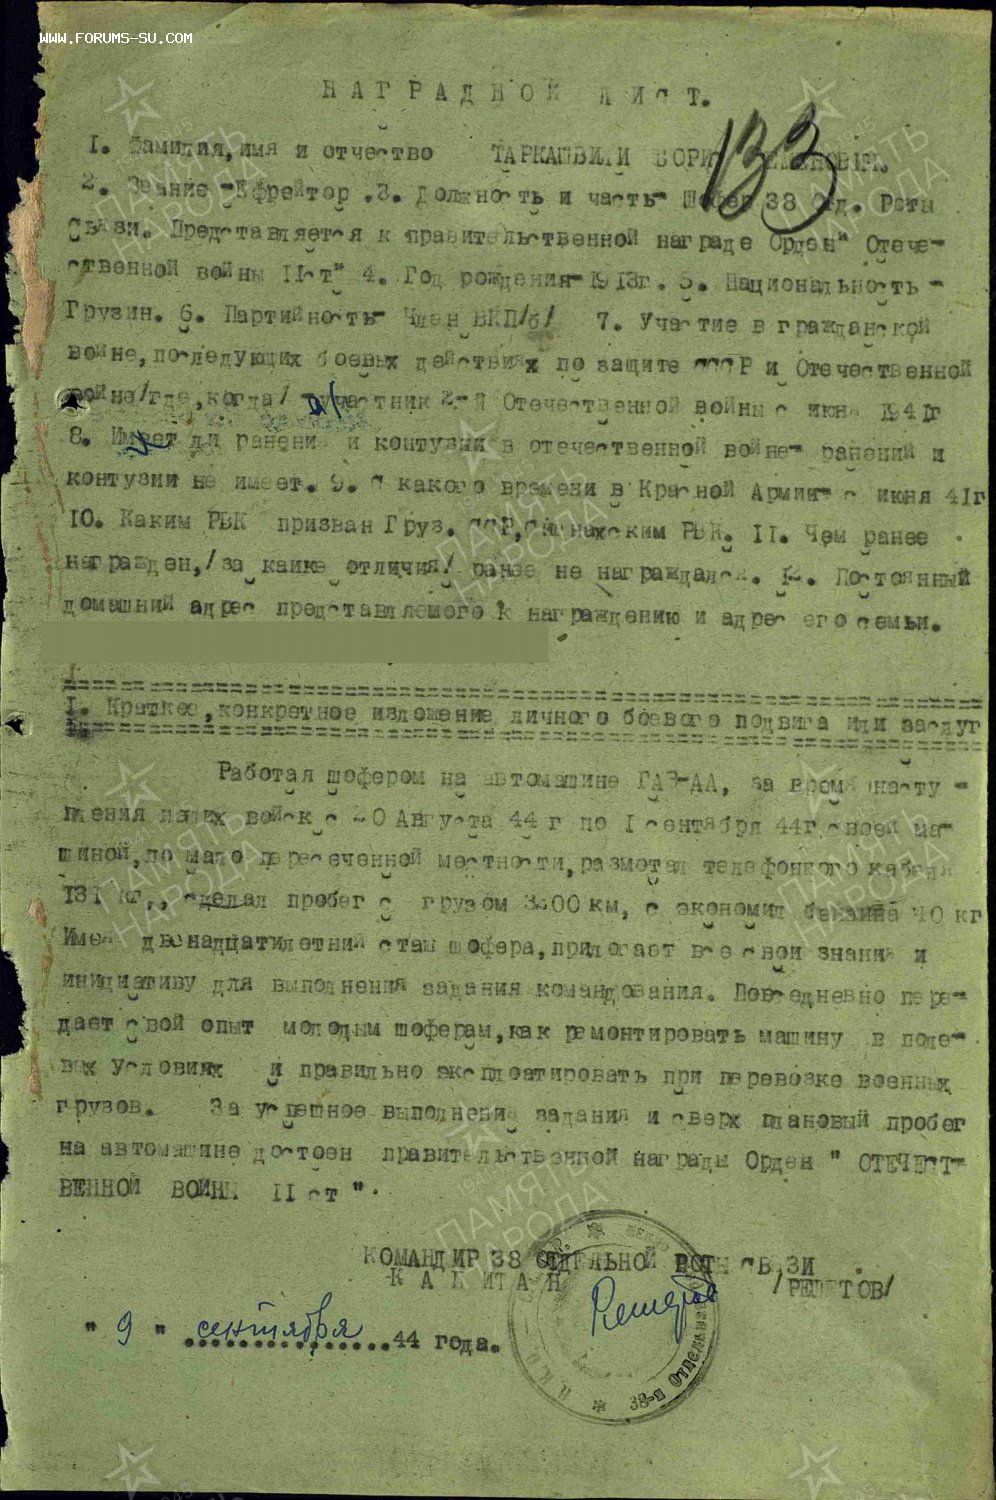 www.forums-su.com
НАГРАДНОЙ ЛИСТ.
133
1. Фамилия, имя и отчество ТАРКАШВИЛИ БОРИС
2. Звание -Ефрейтор .3. Должность и часть- Шофер 38 Отд. Роты
Связи. Представляется к правительственной награде Орден" Отече-
ственной войны II ст" 4. Год рождения-1913г. 5. Национальность -
Грузин. 6. Партийность- Член ВКП/б/ 7. Участие в гражданской
войне, последующих боевых действиях по защите СССР и Отечественной
войне/где, когда/ участник Отечественной войны с июня 1941г
8. Имеет ли ранения и контузии в отечественной войне- ранений и
контузии не имеет. 9. С какого времени в Красной Армии- с июня 41г
10. Каким РВК призван Груз. ССР, РВК. 11. Чем ранее
награжден,/за какие отличия/ ранее не награждался. 12. Постоянный
домашний адрес представляемого к награждению и адрес его семьи.
1. Краткое, конкретное изложение личного боевого подвига или заслуг
Работая шофером на автомашине ГАЗ-АА, за время насту -
пления наших войск с 20 Августа 44 г по 1 сентября 44г своей ма-
шиной, по мало пересеченной местности, размотал телефонного кабеля
131 кг,, сделал пробег с грузом км, с экономил бензина 40 кг
Имея двенадцатилетний стаж шофера, прилогает все свои знания и
инициативу для выполнения задания командования. Повседневно пере-
дает свой опыт молодым шоферам, как ремонтировать машину в поле-
вых условиях и правильно эксплоатировать при перевозке военных
грузов. За успешное выполнения задания и сверх плановый пробег
на автомашине достоен правительственной награды Орден " ОТЕЧЕСТ-
ВЕННОЙ ВОЙНЫ II ст ".
КОМАНДИР 38 ОТДЕЛЬНОЙ РОТЫ СВЯЗИ
КАПИТАН
/РЕШЕТОВ/
" 9 " сентября 44 года.
38-я Отдельная